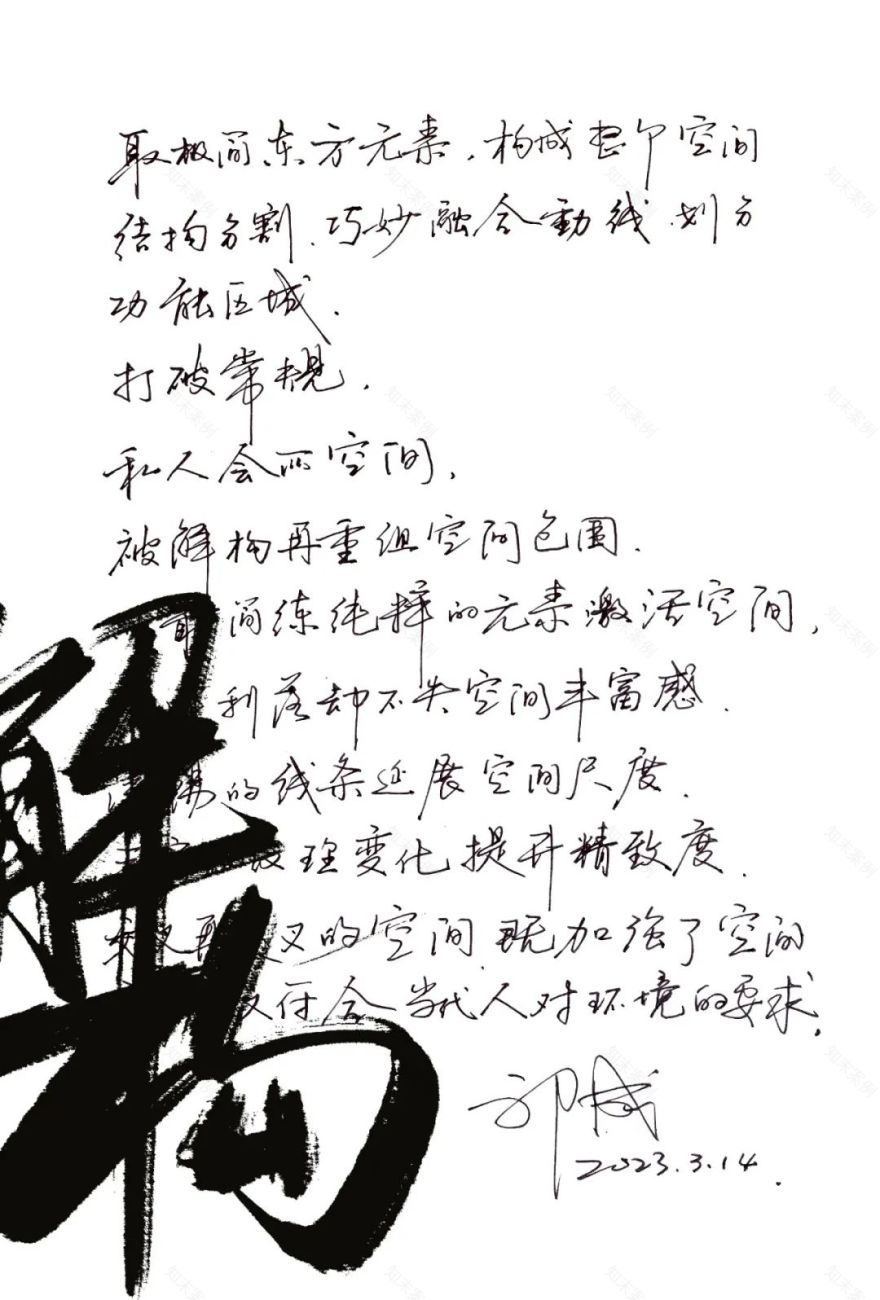 取极简东方元素,构成整个空间
结构分割.巧妙融合動线.划分
功能区域.
打破常规.
私人会所空间,
被解构再重组空间包围.
取简练纯粹的元素激活空间,
利落却不失空间丰富感.
的线条延展空间尺度.
纹理变化提升精致度.
叉的空间既加强了空间
又符合当代人对环境的要求.
2023.3.14.
解构
知末案例